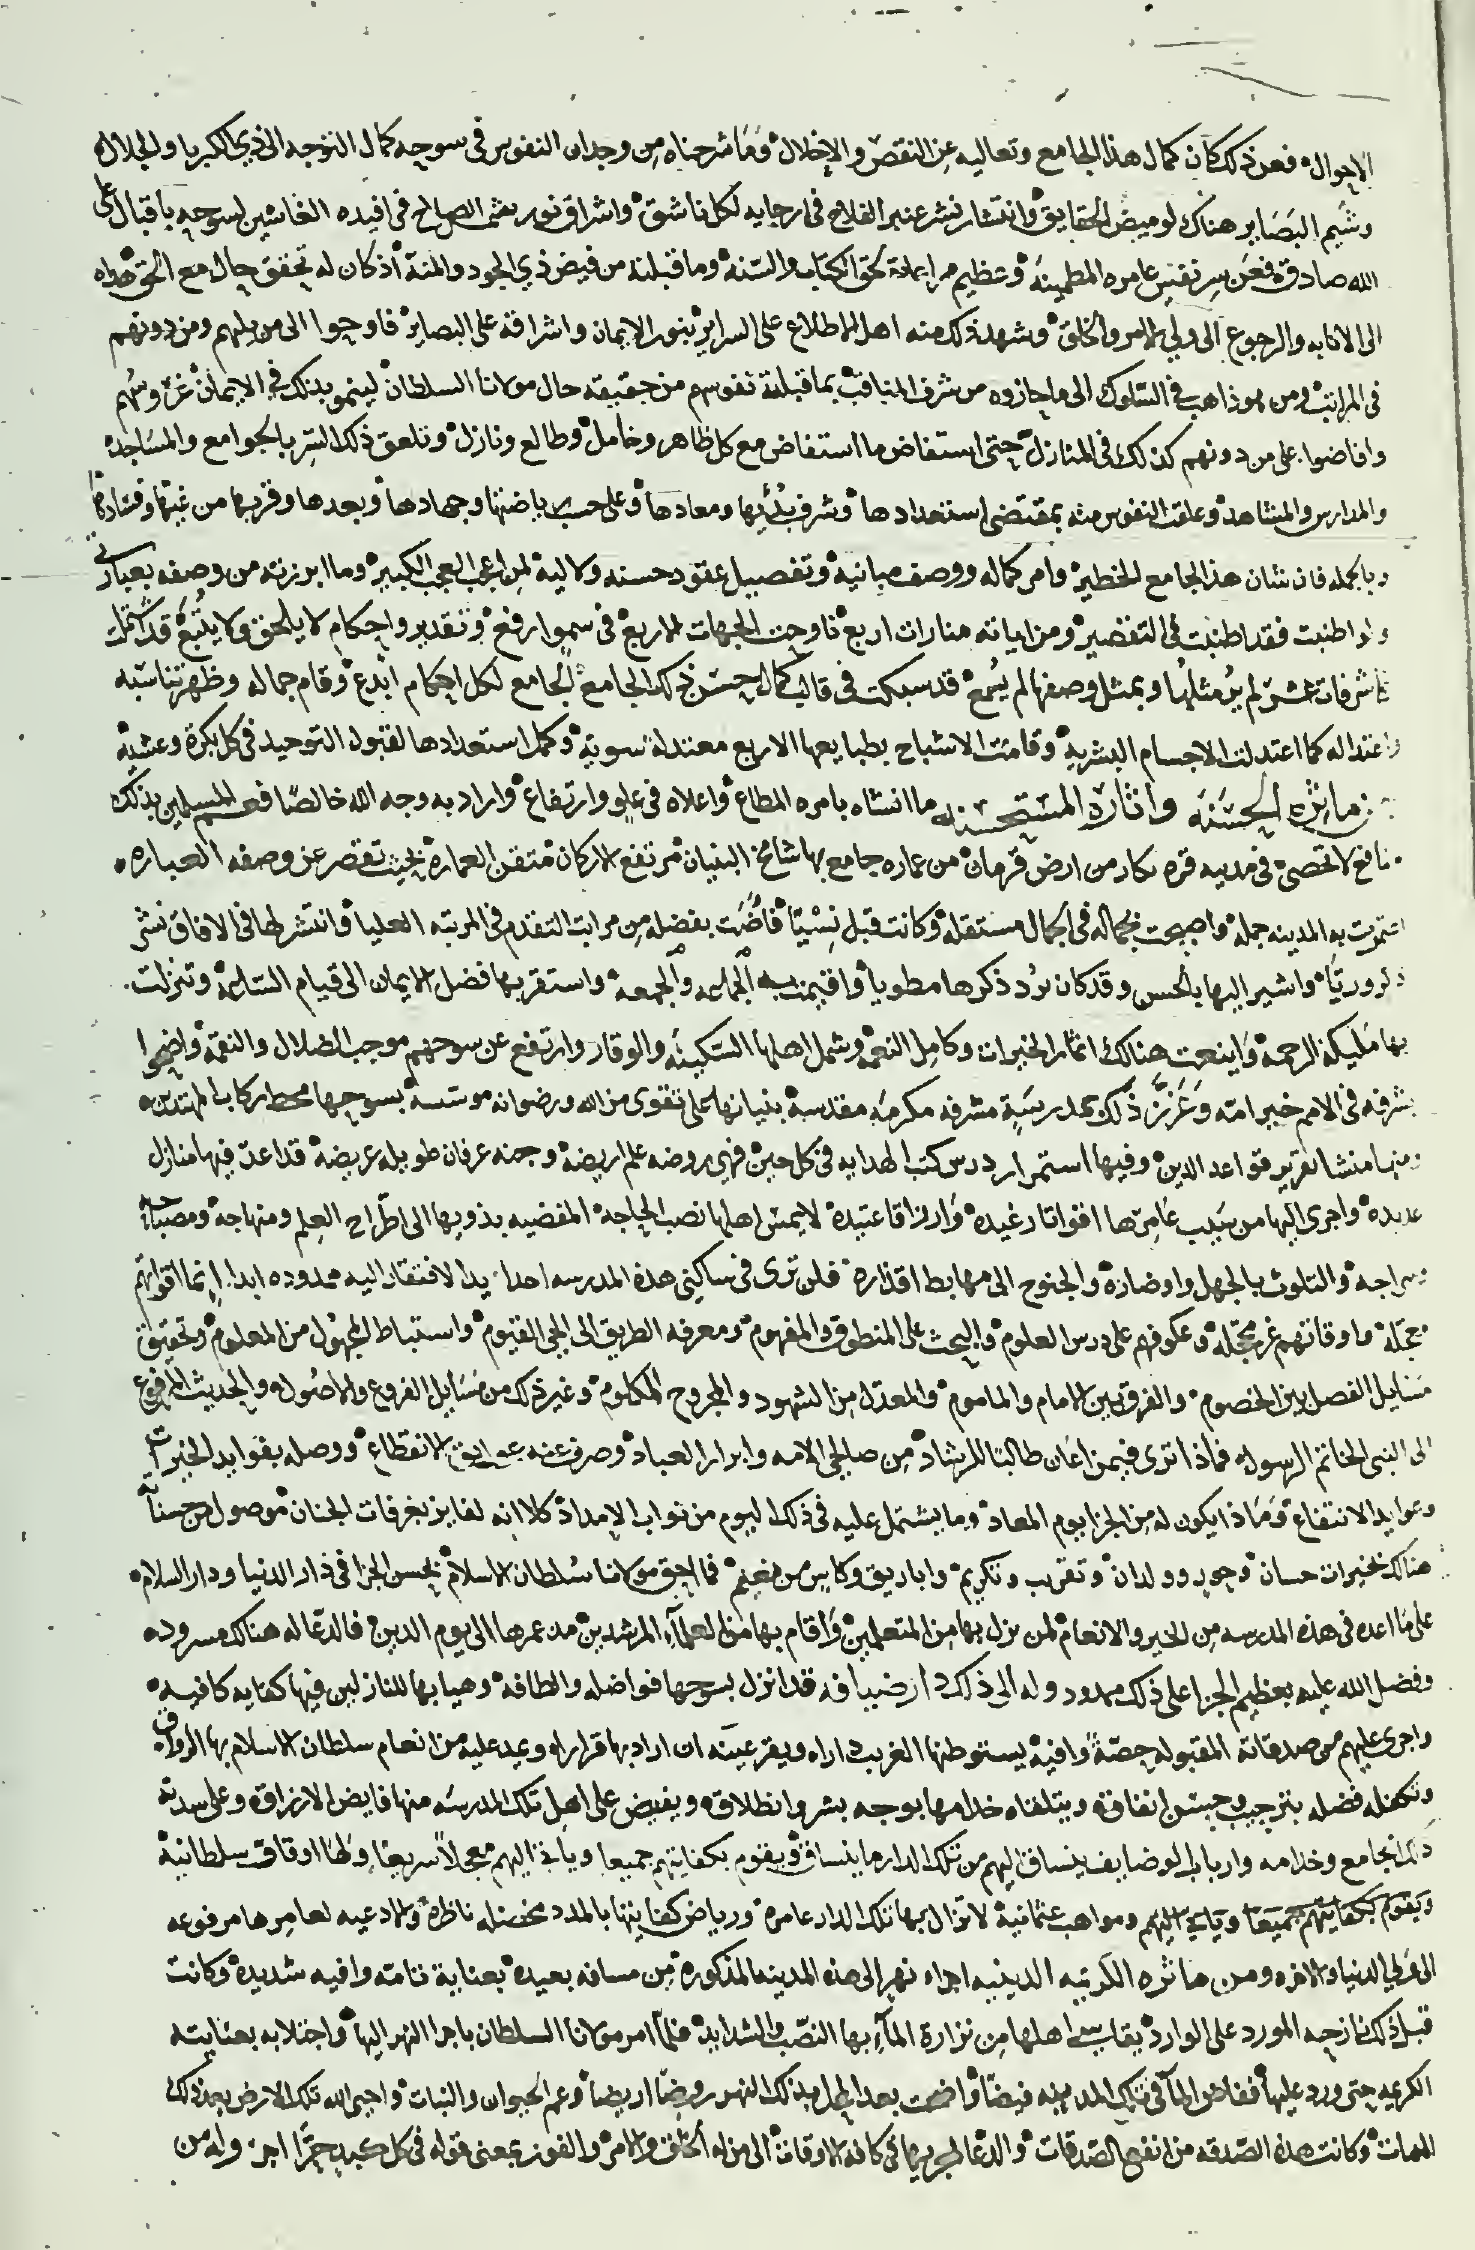 الاحوال فعن ذلك كان كمال هذا الجامع وتعاليه عن النقص والاخلال وما شرحناه من وجدان النفوس في سوحه كمال التوجه الى ذي الكبريا والجلال
وشيم البصاير هناك لوميض الحقايق وانتشار نشر عنبر الفلاح في ارجايه لكل ناشق واشراق نور الصالح في افيده الغاشين لسوحه باقبال على
الله صادق فعن سر نفس عامره المطمينة وعظيم مراعاته لحق الكتاب والسنه وما قبلته من فيض ذي الجود والمنة اذ كان له تحقق حال مع الحق هداه
الى الانابه والرجوع الى ولي الامر والخلق وشهد ذلك منه اهل الاطلاع على السراير بنور الايمان واشراقه على البصاير فاوحوا الى من يليهم ومن دونهم
في المراتب ومن هو ذاهب في السلوك الى ما حازوه من شرف المناقب بما قبلته نفوسهم من حقيقه حال مولانا السلطان لينمو بذلك في الايمان غروسهم
وافاضوا على من دونهم كذلك في المنازل حتى استفاض ما استفاض مع كل ظاهر وخامل وطالع ونازل وتلعق ذلك السر بالجوامع والمساجد
والمدارس والمشاهد وعلقت النفوس منه بمقتضى استعدادها وشرف بديها ومعادها وعلى حسب رياضتها وجهادها وبعدها وقربها من غيها
وبالجمله فان شان هذا الجامع الخطير وامر كماله ووصف مبانيه وتفصيل عقود حسنه ولاليه لمن اعجب العجب الكبير وما ابرزته من وصفه بعبارتي
ولو اطنبت فقد اطنبت في التقصير ومن اياته منارات اربع ناوحت الجهات الاربع في سمو ارفع وتقدير واحكام لا يلحق ولا يتبع قد اشتملت
شرفات عشر لم ير مثلها وبمثل وصفها لم يسمع قد سبكت في قالب كمال حسن ذلك الجامع الجامع لكل احكام ابدع وقام جماله وظهر تناسبه
واعتداله كما اعتدلت الاجسام البشريه وقامت الاشباح بطبايعها الاربع معتدلة سوية وكمل استعدادها لقبول التوحيد في كل بكرة وعشية
من ماثره الحسنه واثاره المستحسنه ما انشاه بامره المطاع واعلاه في علو وارتفاع واراد به وجه الله خالصا فعم المسلمين بذلك
نافع لا تحصى في مدينه قره نكار من ارض قرمان من عماره جامع بها شامخ البنيان مرتفع الاركان متقن العمارة بحيث تقصر عن وصفه العباره
به المدينه جمله واصبحت بجماله في اجمال مستقله وكانت قبل نسيا فاضت بفضله من مراتب التقدم في المرتبه العليا وانتشر لها في الافاق نشر
واشير اليها بالحسن وقد كان برد ذكرها مطويا واقيمت به الجماعه والجمعه واستقر بها فضل الايمان الى قيام الساعه وتنزلت
بها مليكة الرحمة واينعت هنالك اثمار الخيرات وكامل النعمه وشمل اهلها السكينه والوقار وارتفع عن سوحهم موجب الضلال والنقمة واضحوا
بشرفه في الامم خير امته وعزز ذلك بمدرسة مشرفه مكرمه مقدسة بنيانها على تقوى من الله ورضوانه موسسة بسوحها محط ركاب المهتدين
ومنها منشا تقرير قواعد الدين وفيها استمرار درس كتب الهدايه في كل حين فهي روضه علم اريضة وجنه عرفان طويله عريضة قد اعد فيها منازل
عديده واجرى اليها من سيب عامرها اقواتا رغيده وارزاقا عتيدة لا يمس اهلها نصب الحاجه المفضيه بذويها الى اطراح العلم ومنهاجه ومصباحه
وسراجه والتلوث بالجهل واوضاره والجنوح الى مهابط اقذاره فلن ترى في ساكني هذه المدرسه احدا يدا لافتقار اليه ممدوده ابدا انما اقواتهم
معجله واوقاتهم غر محجله وعكوفهم على درس العلوم والبحث على المنطوق والمفهوم ومعرفه الطريق الى الحي القيوم واستنباط المجهول من المعلوم وتحقيق
مسايل الفصل بين الخصوم والفرق بين الامام والماموم والمعدل من الشهود والمجروح المكلوم وغير ذلك من مسايل الفروع والاصول والحديث المرفوع
الى النبي الخاتم الرسول فماذا ترى فيمن اعان طالبا للرشاد من صالحي الامه وابرار العباد وصرف عنه عوايق الانقطاع ووصله بفوايد الخيرات
وعوايد الانتفاع وماذا يكون له من الجزا يوم المعاد وما يشتمل عليه في ذلك اليوم من ثواب الامداد كلا انه لفايز بغرفات الجنان موصول من حسناته
هنالك بخيرات حسان وحور وولدان وتقريب وتكريم واباريق وكاس من نعيم فما احق مولانا سلطان الاسلام بحسن الجزا في دار الدنيا ودار السلام
على ما اعده في هذه المدرسه من الخير والانعام لمن نزل بها من المتعلمين واقام بها من العلماء المرشدين من عمرها الى يوم الدين فالدعا له هناك مسروده
وفضل الله عليه بعظيم الجزا على ذلك ممدود وله الى ذلك دار ضيافه قد انزل بسوحها فواضله والطافه وهيا بها للنازلين فيها كفايه كافيه
واجرى عليهم من صدقاته المقبوله حصة وافية يستوطنها الغريب داراه ويقر عينه ان اراد بها قراراه ويمد عليه من انعام سلطان الاسلام بها
وتكفله فضله بترحيب وحسن انفاقه ويتلقاه خدامها بوجه بشر وانطلاقه ويفيض على اهل تلك المدرسه منها فايض الارزاق وعلى سدنة
ذلك الجامع وخدامه وارباب الوضايف ينساق اليهم من تلك الدار ما ينساق ويقوم بكفايتهم جميعا وياتي اليهم معجلا سريعا ولها اوقاف سلطانية
ويقوم بكفايتهم جميعا وياتي اليهم ومواهب عثمانية لا تزال بها تلك الدار عامرة ورياض كفايتها بالمدد مخضله ناظرة والادعيه لعامرها مرفوعه
الى مولى الدنيا والاخره ومن ماثره الكريمه الدينيه اجراء نهر الى هذه المدينه المذكورة من مسافه بعيده بعناية تامه وافيه شديدة وكانت
قبل ذلك نازحه المورد على الوارد يقاسي اهلها من نزارة الماء بها النصب والشدايد فلما امر مولانا السلطان باجرا النهر اليها واجتلابه بعنايته
الكريمه حتى ورد عليها ففاض الماء في تلك المدينه فيضا واضحت بعد المحل بذلك النهر روضا اريضا وعم الحيوان والنبات واحيى الله تلك الارض بعد ذلك
الممات وكانت هذه الصدقه من انفع الصدقات والدعا لمجريها في كافة الاوقات الى من له الخلق والامر والفوز بمعنى قوله في كل كبد حرا اجر وله من